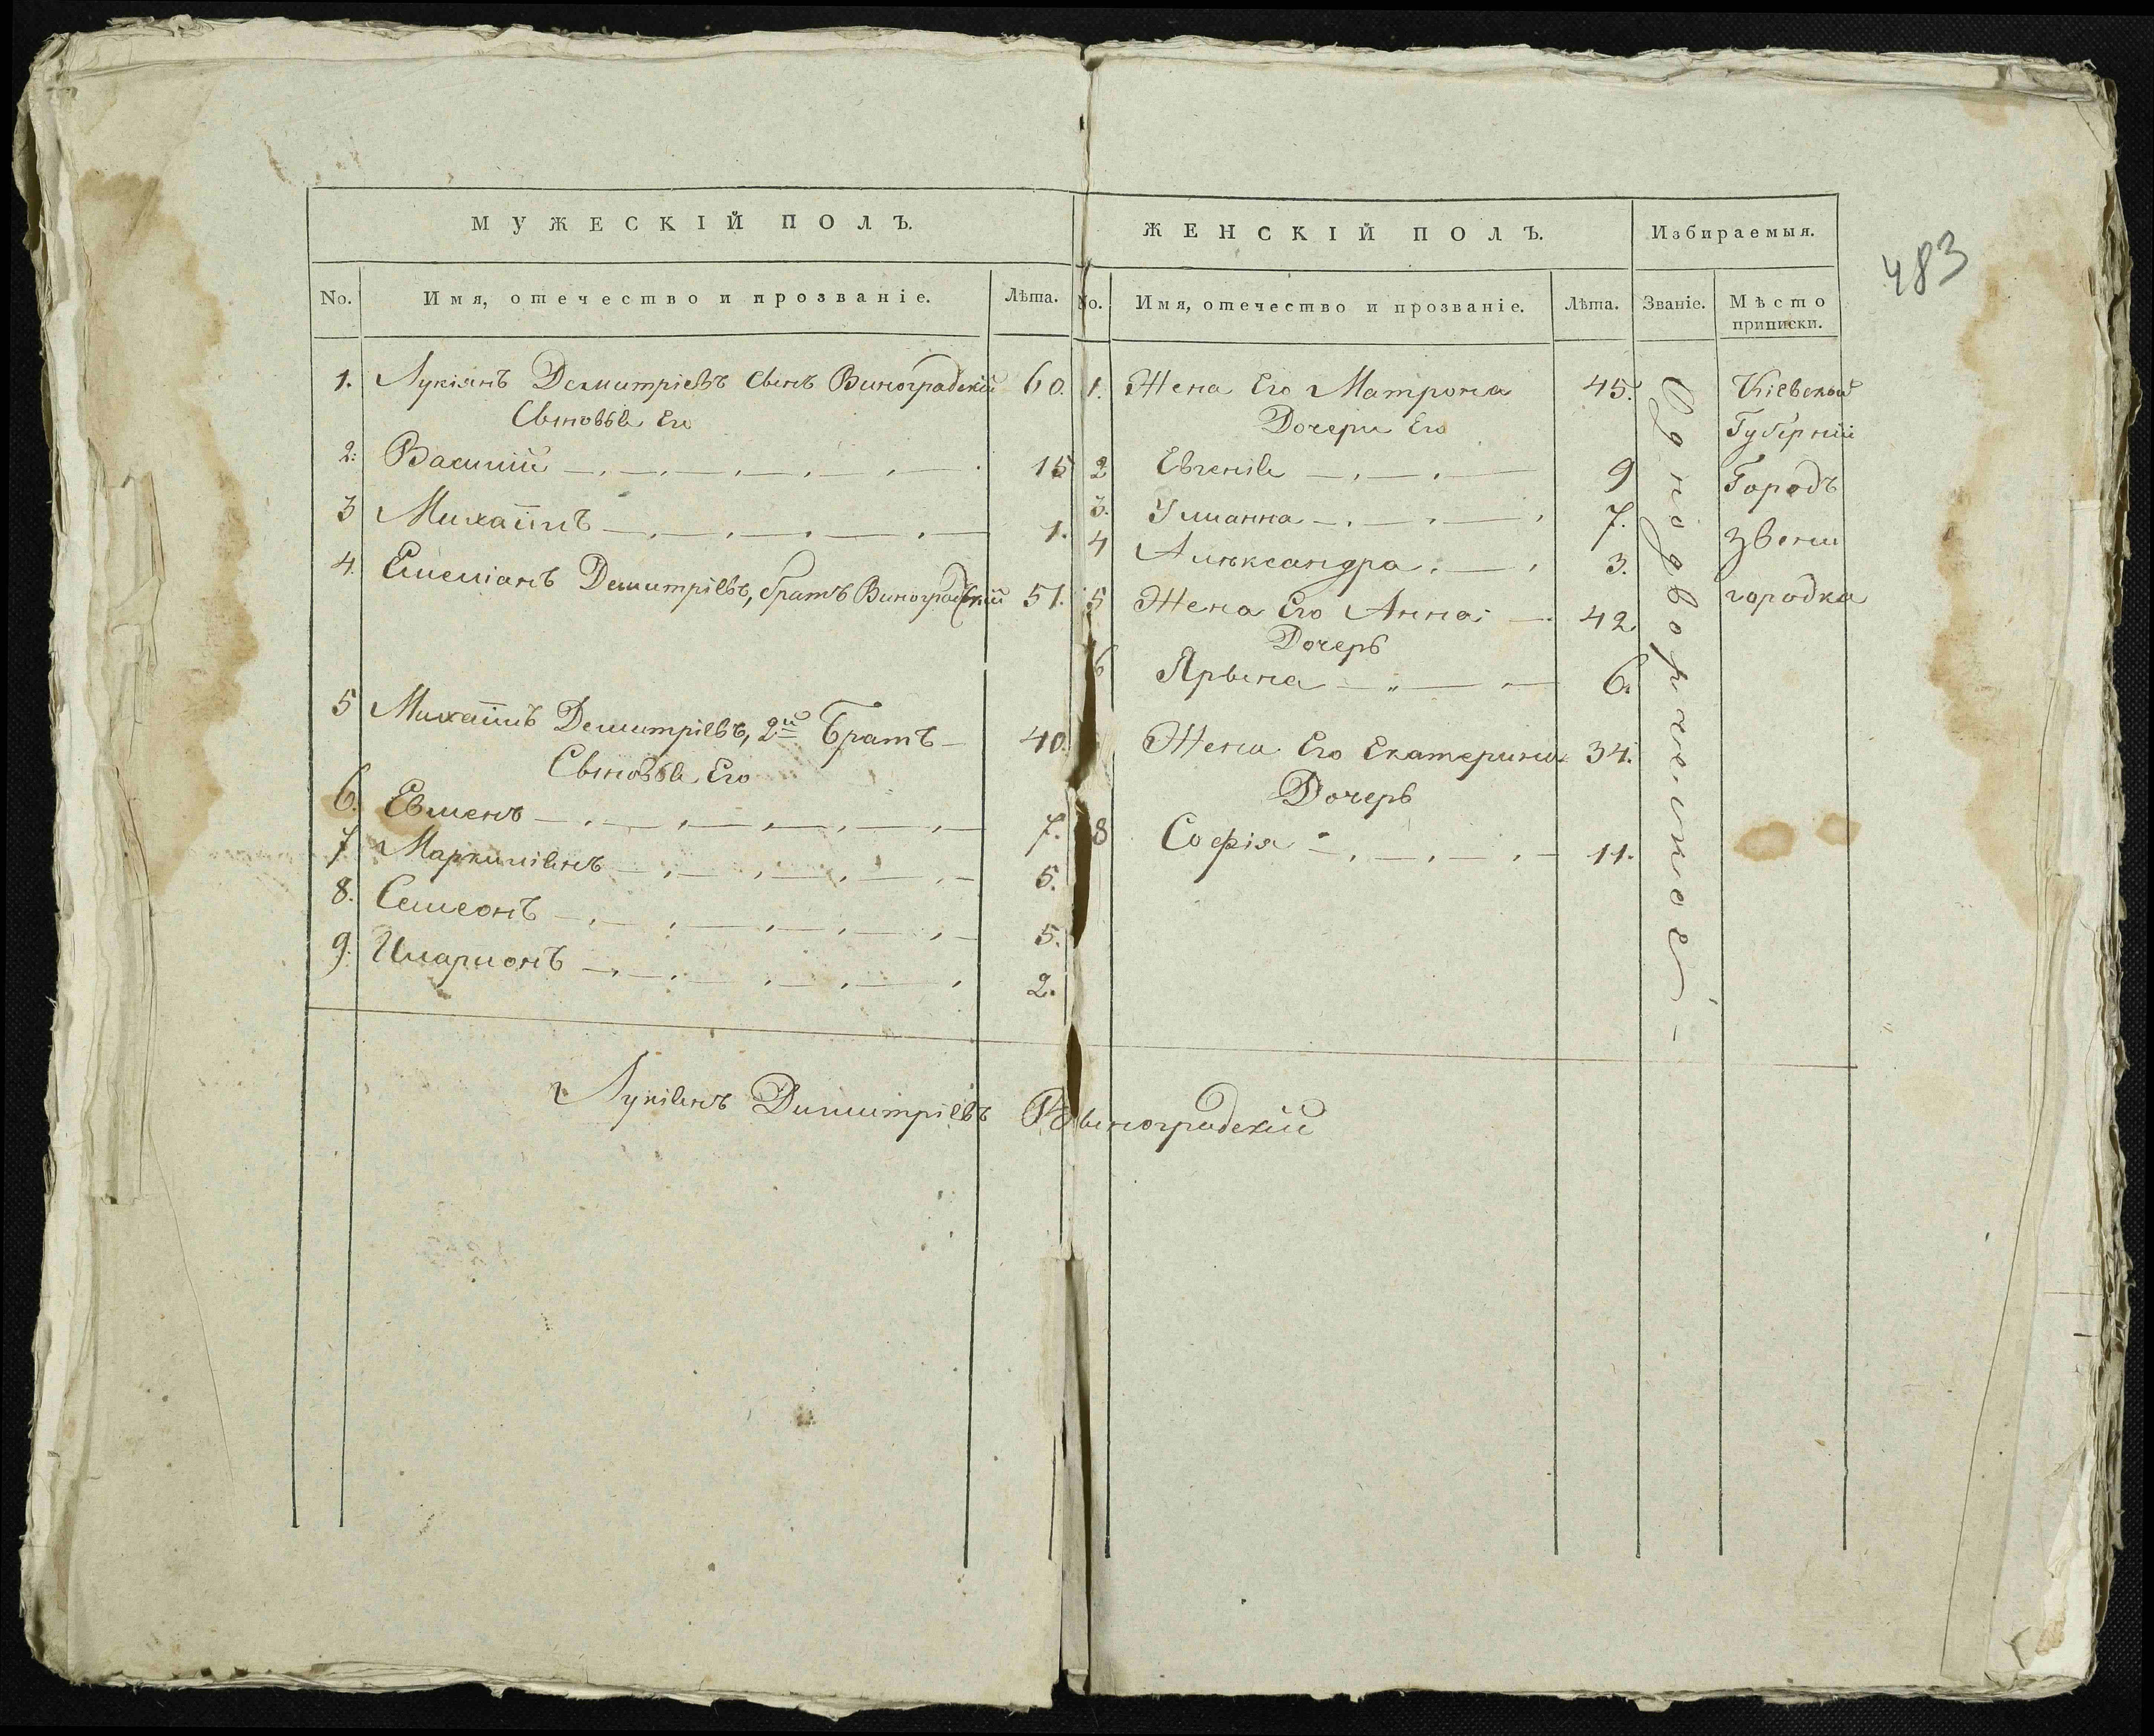 МУЖЕСКІЙ ПОЛЪ.
No. Имя, отечество и прозваніе. Лѣта.
1. Лукіянъ Демитріевъ сынъ Виноградскій 60.
Сыновья Его
2. Василій 15
3 Михаилъ 1.
4. Емеліанъ Демитріевъ, братъ Виноградскій 51.
5 Михаилъ Демитріевъ, 2й Братъ 40.
Сыновья Его
6. Евменъ 7.
7 Маркиліянъ 5.
8. Семеонъ 5.
9. Иларионъ 2.
ЖЕНСКІЙ ПОЛЪ. Избираемыя.
No. Имя, отечество и прозваніе. Лѣта. Званіе. Мѣсто
приписки.
1. Жена Его Матрона 45.
Дочери Его
2 Евгенія 9
3. Улианна 7.
4 Александра 3.
5 Жена Его Анна 42.
Дочерь
6 Ярына 6.
Жена Его Екатерина 34.
Дочерь
8 Софія 11.
Однодворческое
Кіевской
Губерніи
Городъ
Звени
городка
Лукіянъ Димитріевъ Выноградскій
483